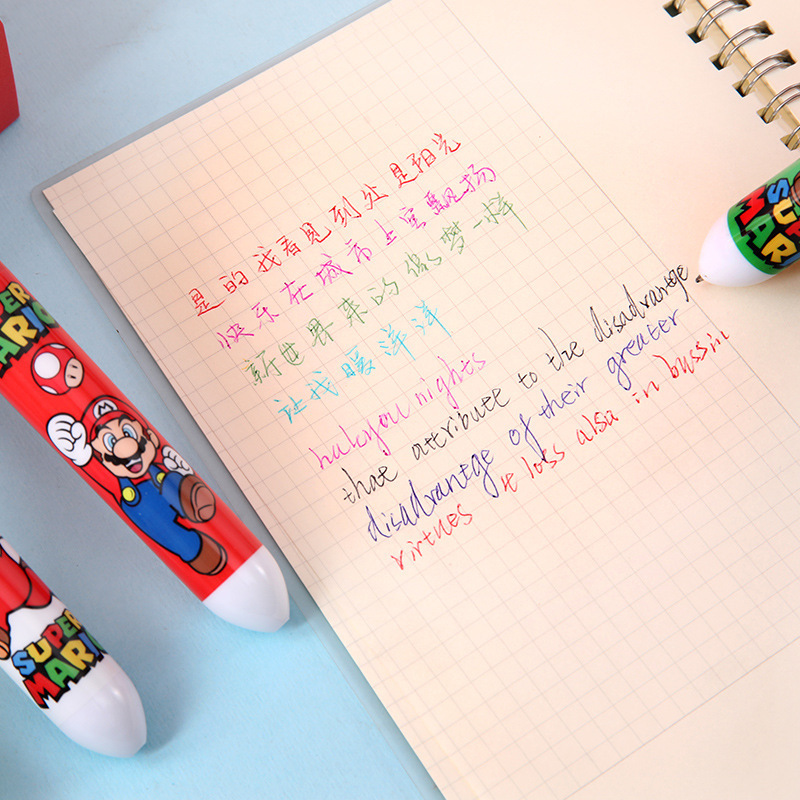 是的我看见到处是阳光
快乐在城市上空飘扬
新世界来的像梦一样
让我暖洋洋
halcyou nights
that attribute to the disadvantge
disadvantge of their greater
virtues it loss also in bussin
SUPER MARIO
SUPER MARIO
SUPER MARIO